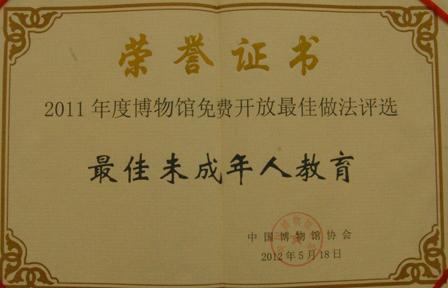 荣誉证书
2011年度博物馆免费开放最佳做法评选
最佳未成年人教育
中国博物馆协会
2012年5月18日